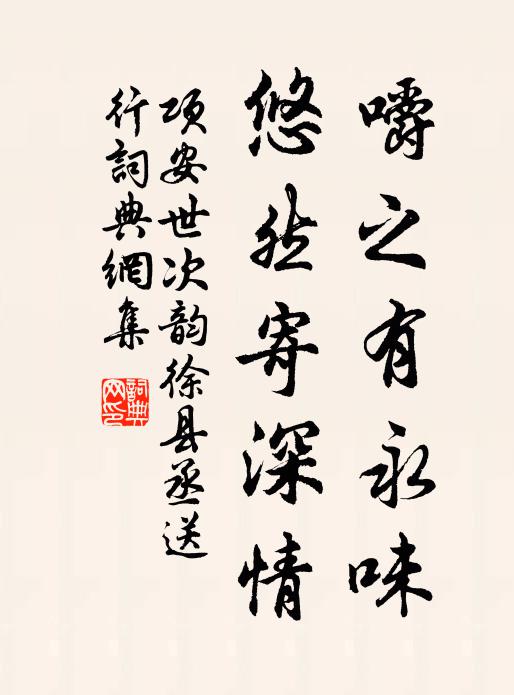 嚼之有永味
悠然寄深情
项安世次韵徐县丞送
行詞典網集
詞典
网印